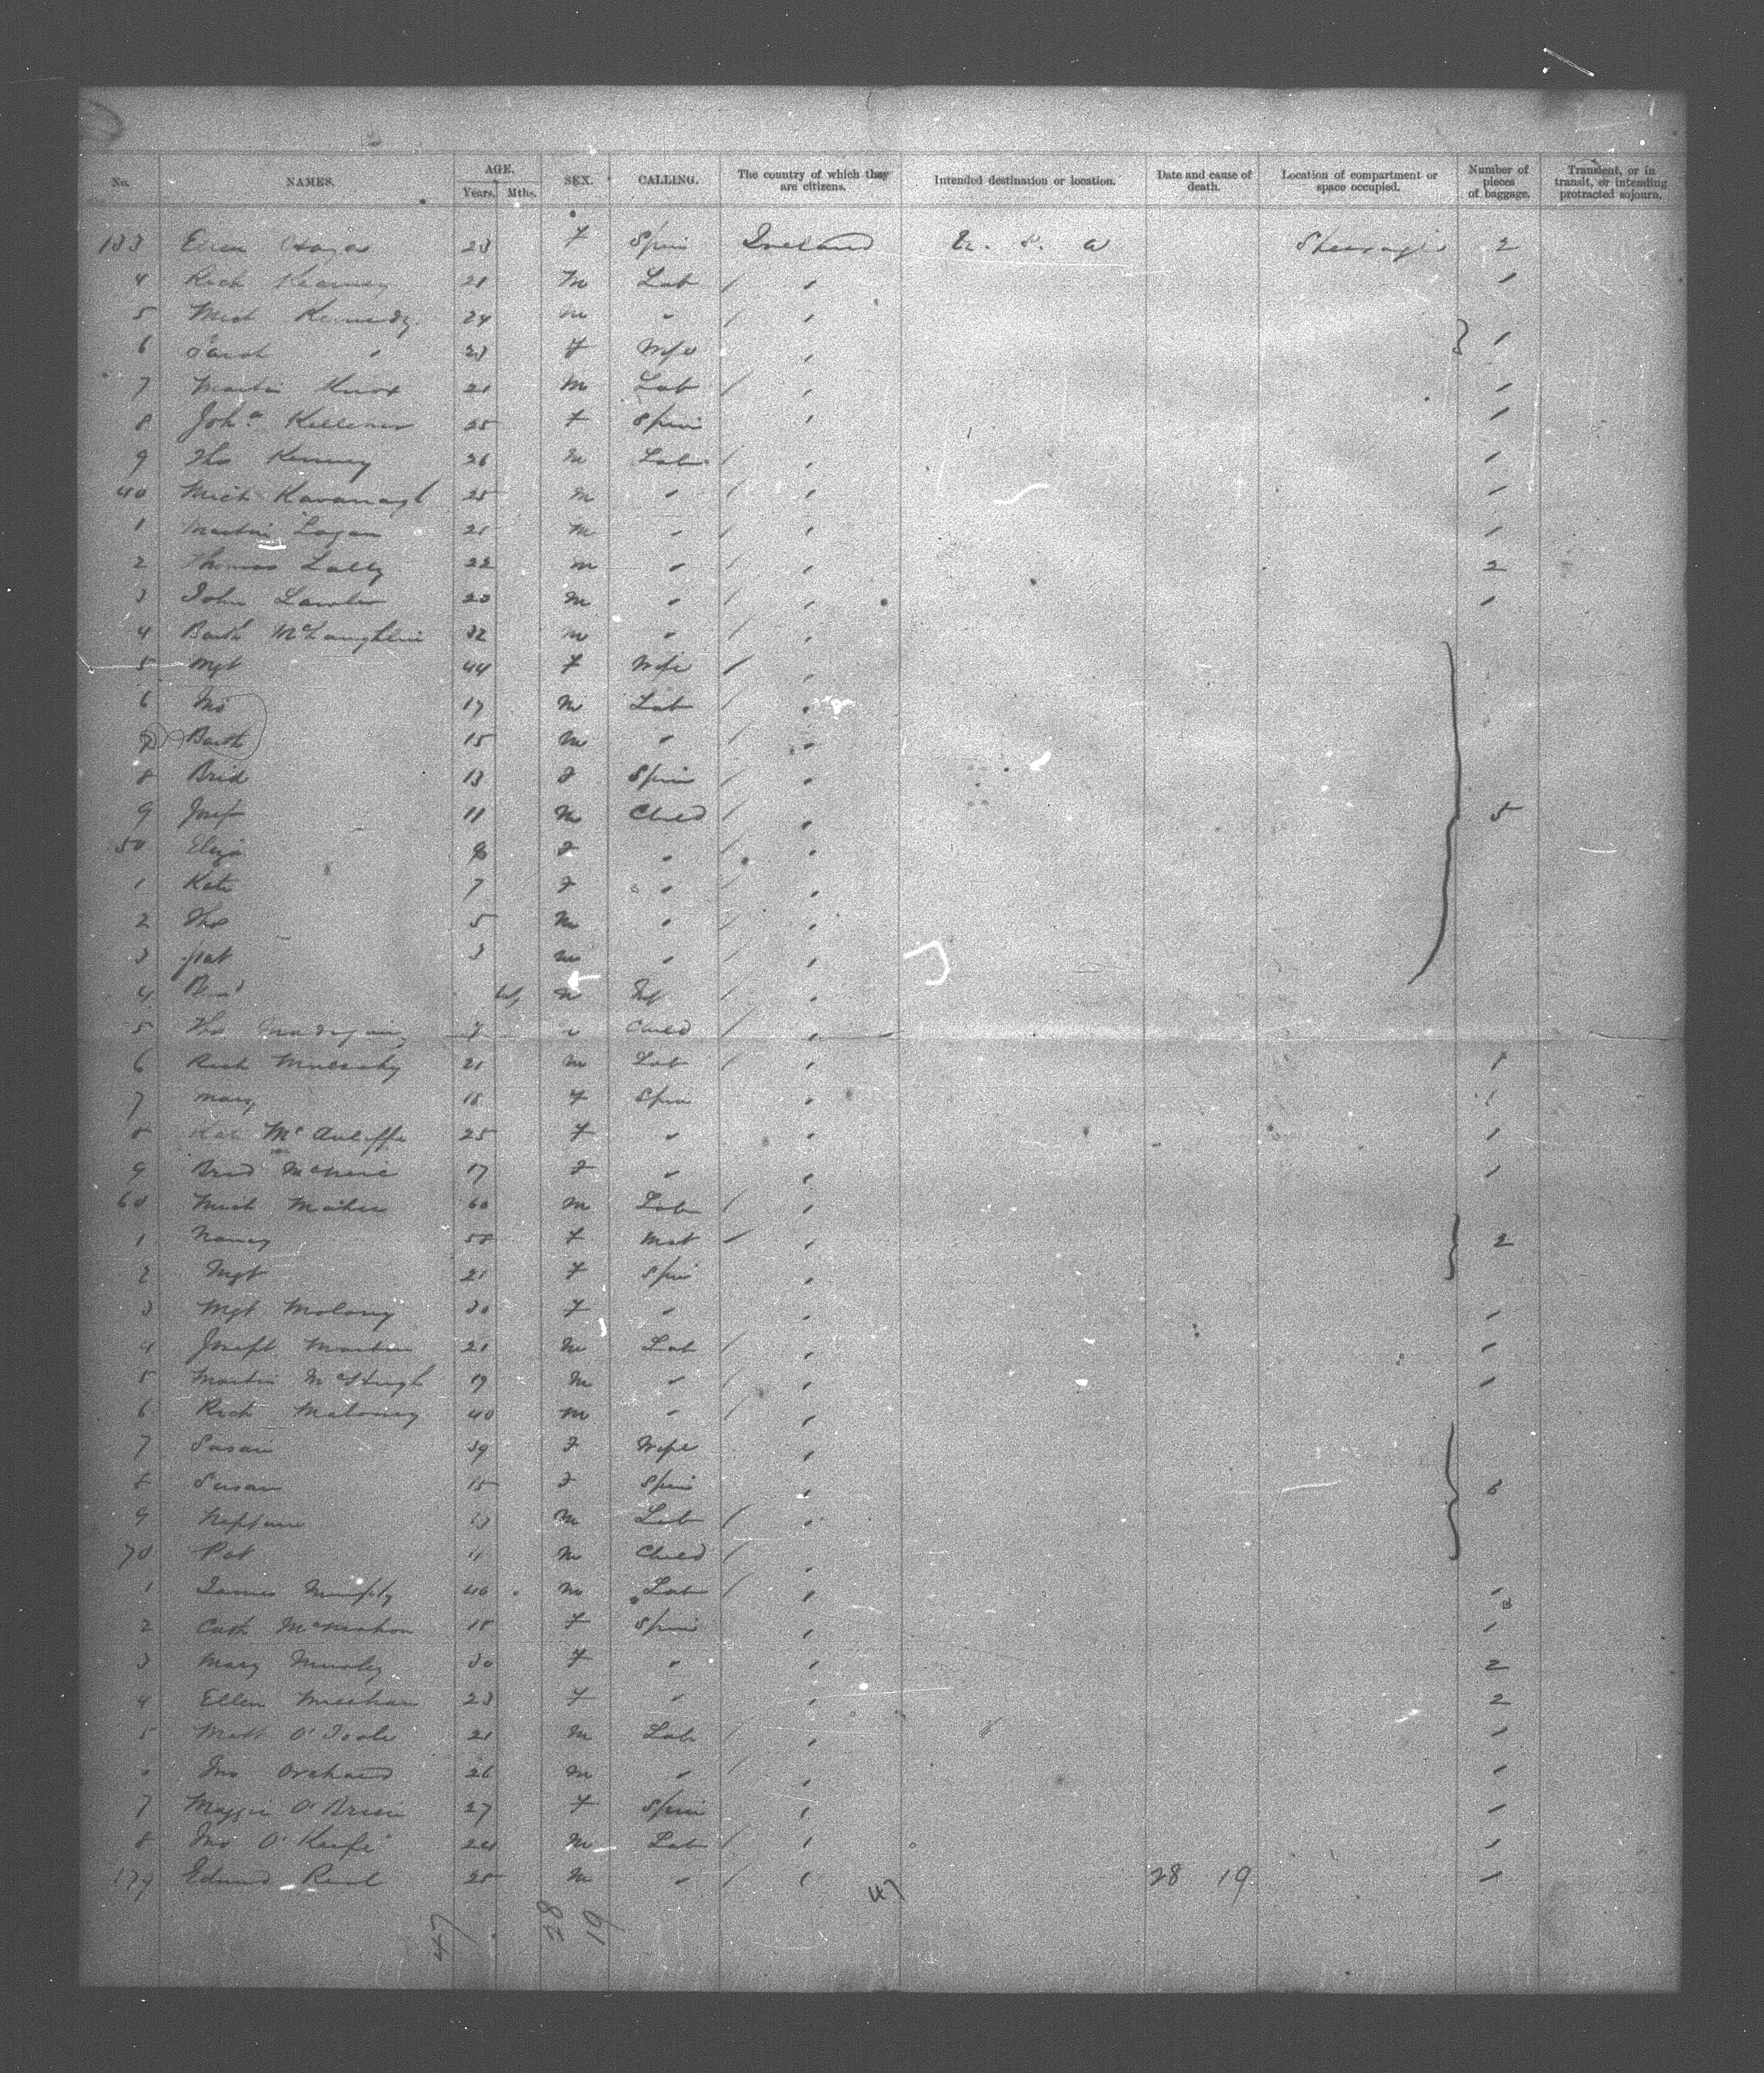 No. NAMES. AGE. Years. Mths. SEX. CALLING. The country of which they are citizens. Intended destination or location. Date and cause of death. Location of compartment or space occupied. Number of pieces of baggage. Transient, or in transit, or intending protracted sojourn.
133 Ellen 23 F Spin Ireland U. S. A Steerage 2
4 Rich Kearney 21 M Lab / " 1
5 Mich Kennedy 24 M " / "
6 Sarah " 23 F Wife " } 1
7 Martin Knox 21 M Lab / " 1
8 Joha Kelleher 25 F Spin " 1
9 Tho Kenny 26 M Lab / " 1
40 Mich Kavanagh 25 M " / " 1
1 Martin Logan 21 M " / " 1
2 Thomas Lally 22 M " / " 2
3 John Lawler 20 M " / " 1
4 Barth McLaughlin 42 M " / "
5 Mgt 44 F Wife / "
6 Jno 17 M Lab / "
7 Barth 15 M " / "
8 Brid 13 F Spin / "
9 Josep 11 M Child / " } 5
50 Eliza F " / "
1 Kate 7 F " / "
2 Tho 5 M " / "
3 Pat 3 M " / "
4 M Inf / "
5 Tho Child / "
6 Rich Mulcahy 21 M Lab / " 1
7 Mary 18 F Spin " 1
8 Kate McAuliffe 25 F " " 1
9 Brid 17 F " " 1
60 Mich Maher 60 M Lab / "
1 Nancy 58 F Mat / " } 2
2 Mgt 21 F Spin "
3 Mgt Molony 30 F " " 1
4 Joseph Martin 21 M Lab / " 1
5 Martin McHugh 19 M " / " 1
6 Rich Maloney 40 M " / "
7 Susan 39 F Wife "
8 Susan 15 F Spin " } 6
9 Neptune 13 M Lab / "
70 Pat 11 M Child / "
1 James Murphy 40 M Lab / " 1
2 Cath McMahon 18 F Spin " 1
3 Mary 30 F " " 2
4 Ellen Meehan 23 F " " 2
5 Matt O'Toole 21 M Lab / " 1
6 Jno Orchard 26 M " / " 1
7 Maggie O'Brien 27 F Spin " 1
8 Jno O'Keefe 24 M Lab / " 1
179 Edmd 25 M " / " 28 19 1
47
47 28 19